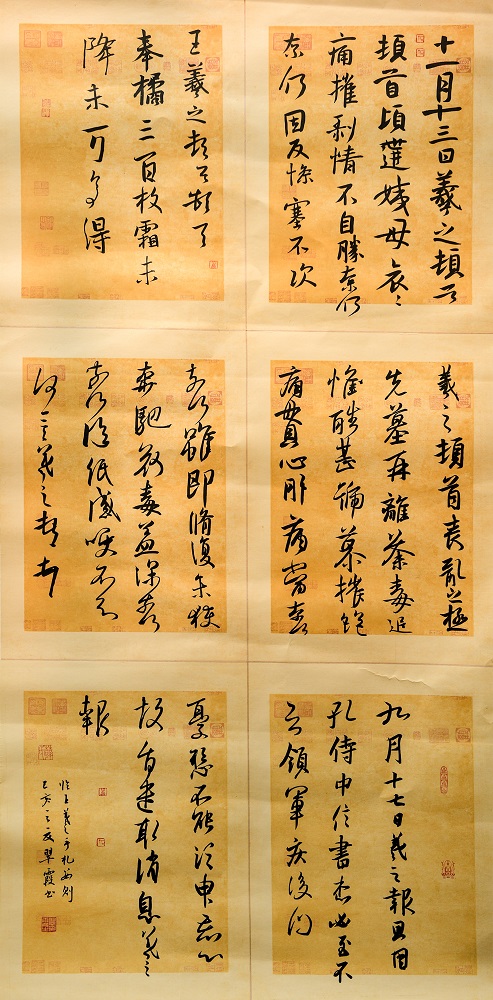 十一月十三日羲之頓首
頓首頃遘姨母哀〻
痛摧剥情不自勝奈何
奈何因反慘塞不次
王羲之頓首頓首
奉橘三百枚霜未
降未可多得
羲之頓首喪亂之極
先墓再離荼毒追
惟酷甚號慕摧絶
痛貫心肝痛當奈何
奈何雖即脩復未獲
奔馳哀毒益深奈何
奈何臨紙感哽不知
何言羲之頓首
九月十七日羲之報且因
孔侍中信書想必至不
知領軍疾後問
憂懸不能須申忘心
故旨遣取消息羲之
報
臨王羲之手札如則
己亥之夏翠霞書